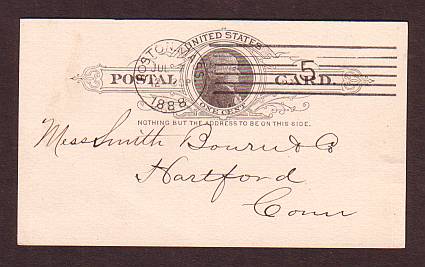 UNITED STATES
BOSTON, MASS.
JUL
1888
5
POSTAL CARD.
ONE CENT
NOTHING BUT THE ADDRESS TO BE ON THIS SIDE.
Mess Smith Bourn & Co
Hartford
Conn